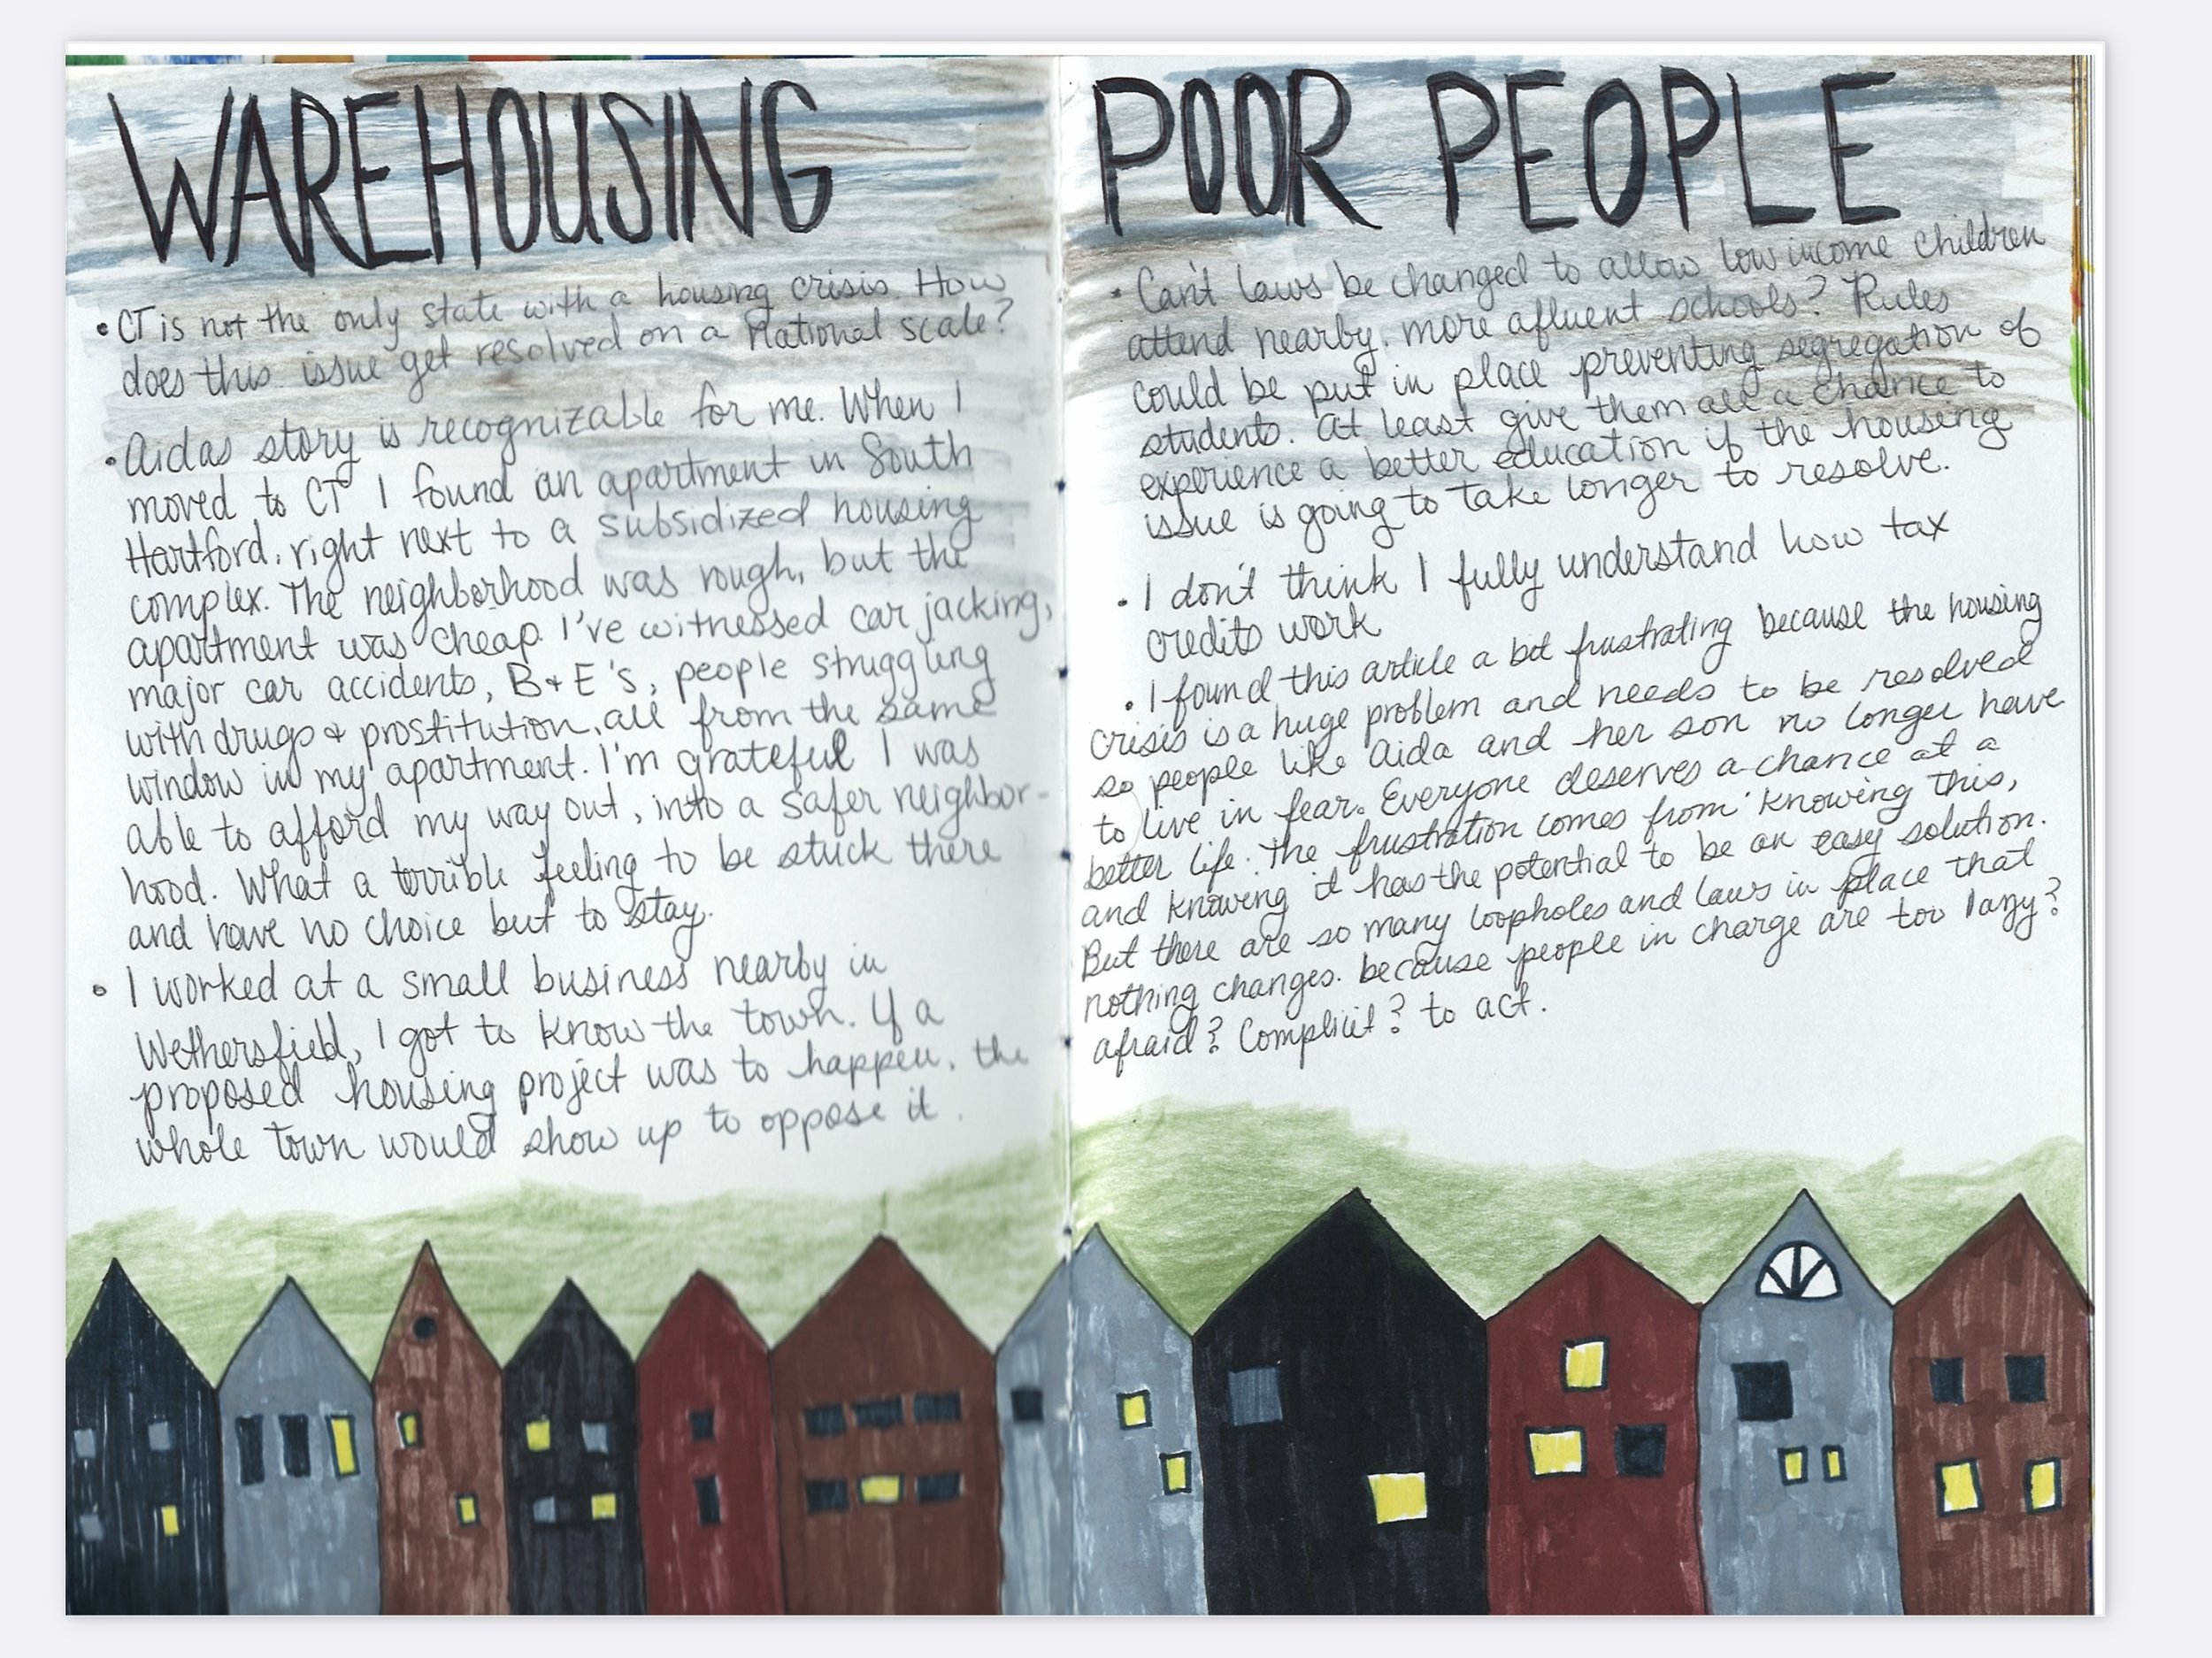 WAREHOUSING
• CT is not the only state with a housing crisis. How
does this issue get resolved on a National scale?
• Aidas story is recognizable for me. When I
moved to CT I found an apartment in South
Hartford, right next to a subsidized housing
complex. The neighborhood was rough, but the
apartment was cheap. I've witnessed car jacking,
major car accidents, B+E's, people struggling
with drugs + prostitution, all from the same
window in my apartment. I'm grateful I was
able to afford my way out, into a safer neighbor-
hood. What a terrible feeling to be stuck there
and have no choice but to stay.
• I worked at a small business nearby in
Wethersfield, I got to know the town. If a
proposed housing project was to happen, the
whole town would show up to oppose it.
POOR PEOPLE
• Can't laws be changed to allow low income children
attend nearby, more afluent schools? Rules
could be put in place preventing segregation of
students. At least give them all a chance to
experience a better education if the housing
issue is going to take longer to resolve.
• I don't think I fully understand how tax
credits work
• I found this article a bit frustrating because the housing
crisis is a huge problem and needs to be resolved
so people like Aida and her son no longer have
to live in fear. Everyone deserves a chance at a
better life. The frustration comes from knowing this,
and knowing it has the potential to be an easy solution.
But there are so many loopholes and laws in place that
nothing changes. because people in charge are too lazy?
afraid? Complicit? to act.